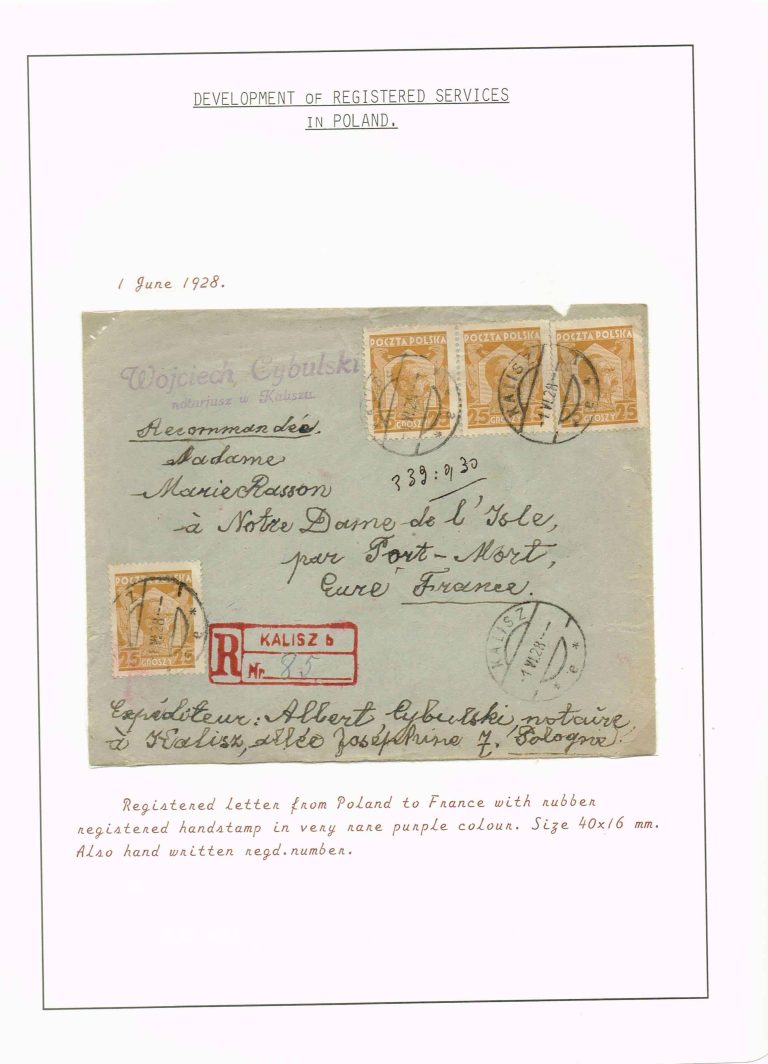 DEVELOPMENT OF REGISTERED SERVICES
IN POLAND.
1 June 1928.
POCZTA POLSKA
25 GROSZY
POCZTA POLSKA
25 GROSZY
POCZTA POLSKA
25 GROSZY 25
KALISZ
-1 VI.28.-
* e *
Wojciech Cybulski
notarjusz w Kaliszu
Recommandée.
Madame
Marie Rasson
à Notre Dame de l'Isle,
par Port-Mort,
Eure France.
POCZTA POLSKA
25 GROSZY 25
R KALISZ b
Nr. 85
KALISZ
-1 VI.28.-
* e *
Expéditeur: Albert Cybulski notaire
à Kalisz, allée Joséphine 7. Pologne.
Registered letter from Poland to France with rubber
registered handstamp in very rare purple colour. Size 40x16 mm.
Also hand written regd.number.